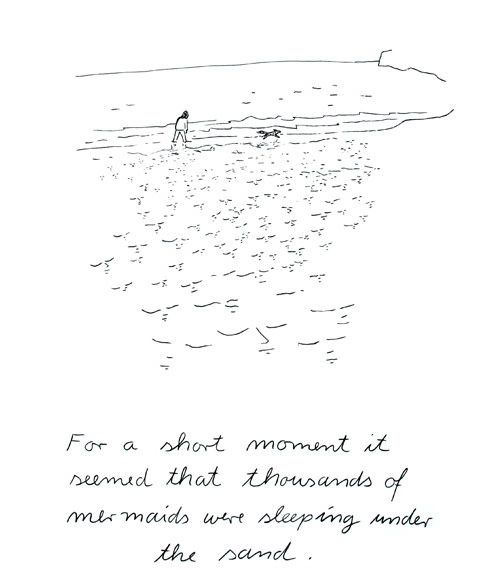 For a short moment it
seemed that thousands of
mermaids were sleeping under
the sand.